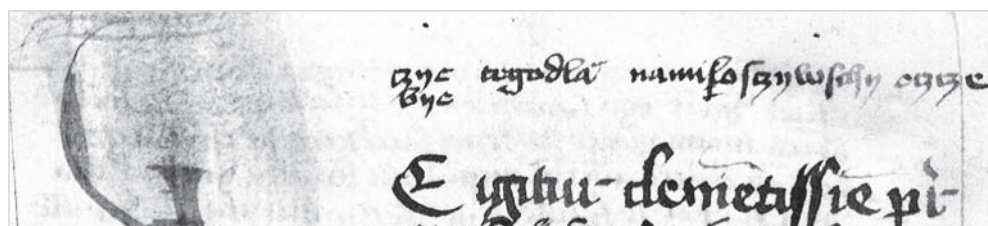 czyc togodla namiłosczywschy oczcze
byc
E igitur clemētissīe pr̄